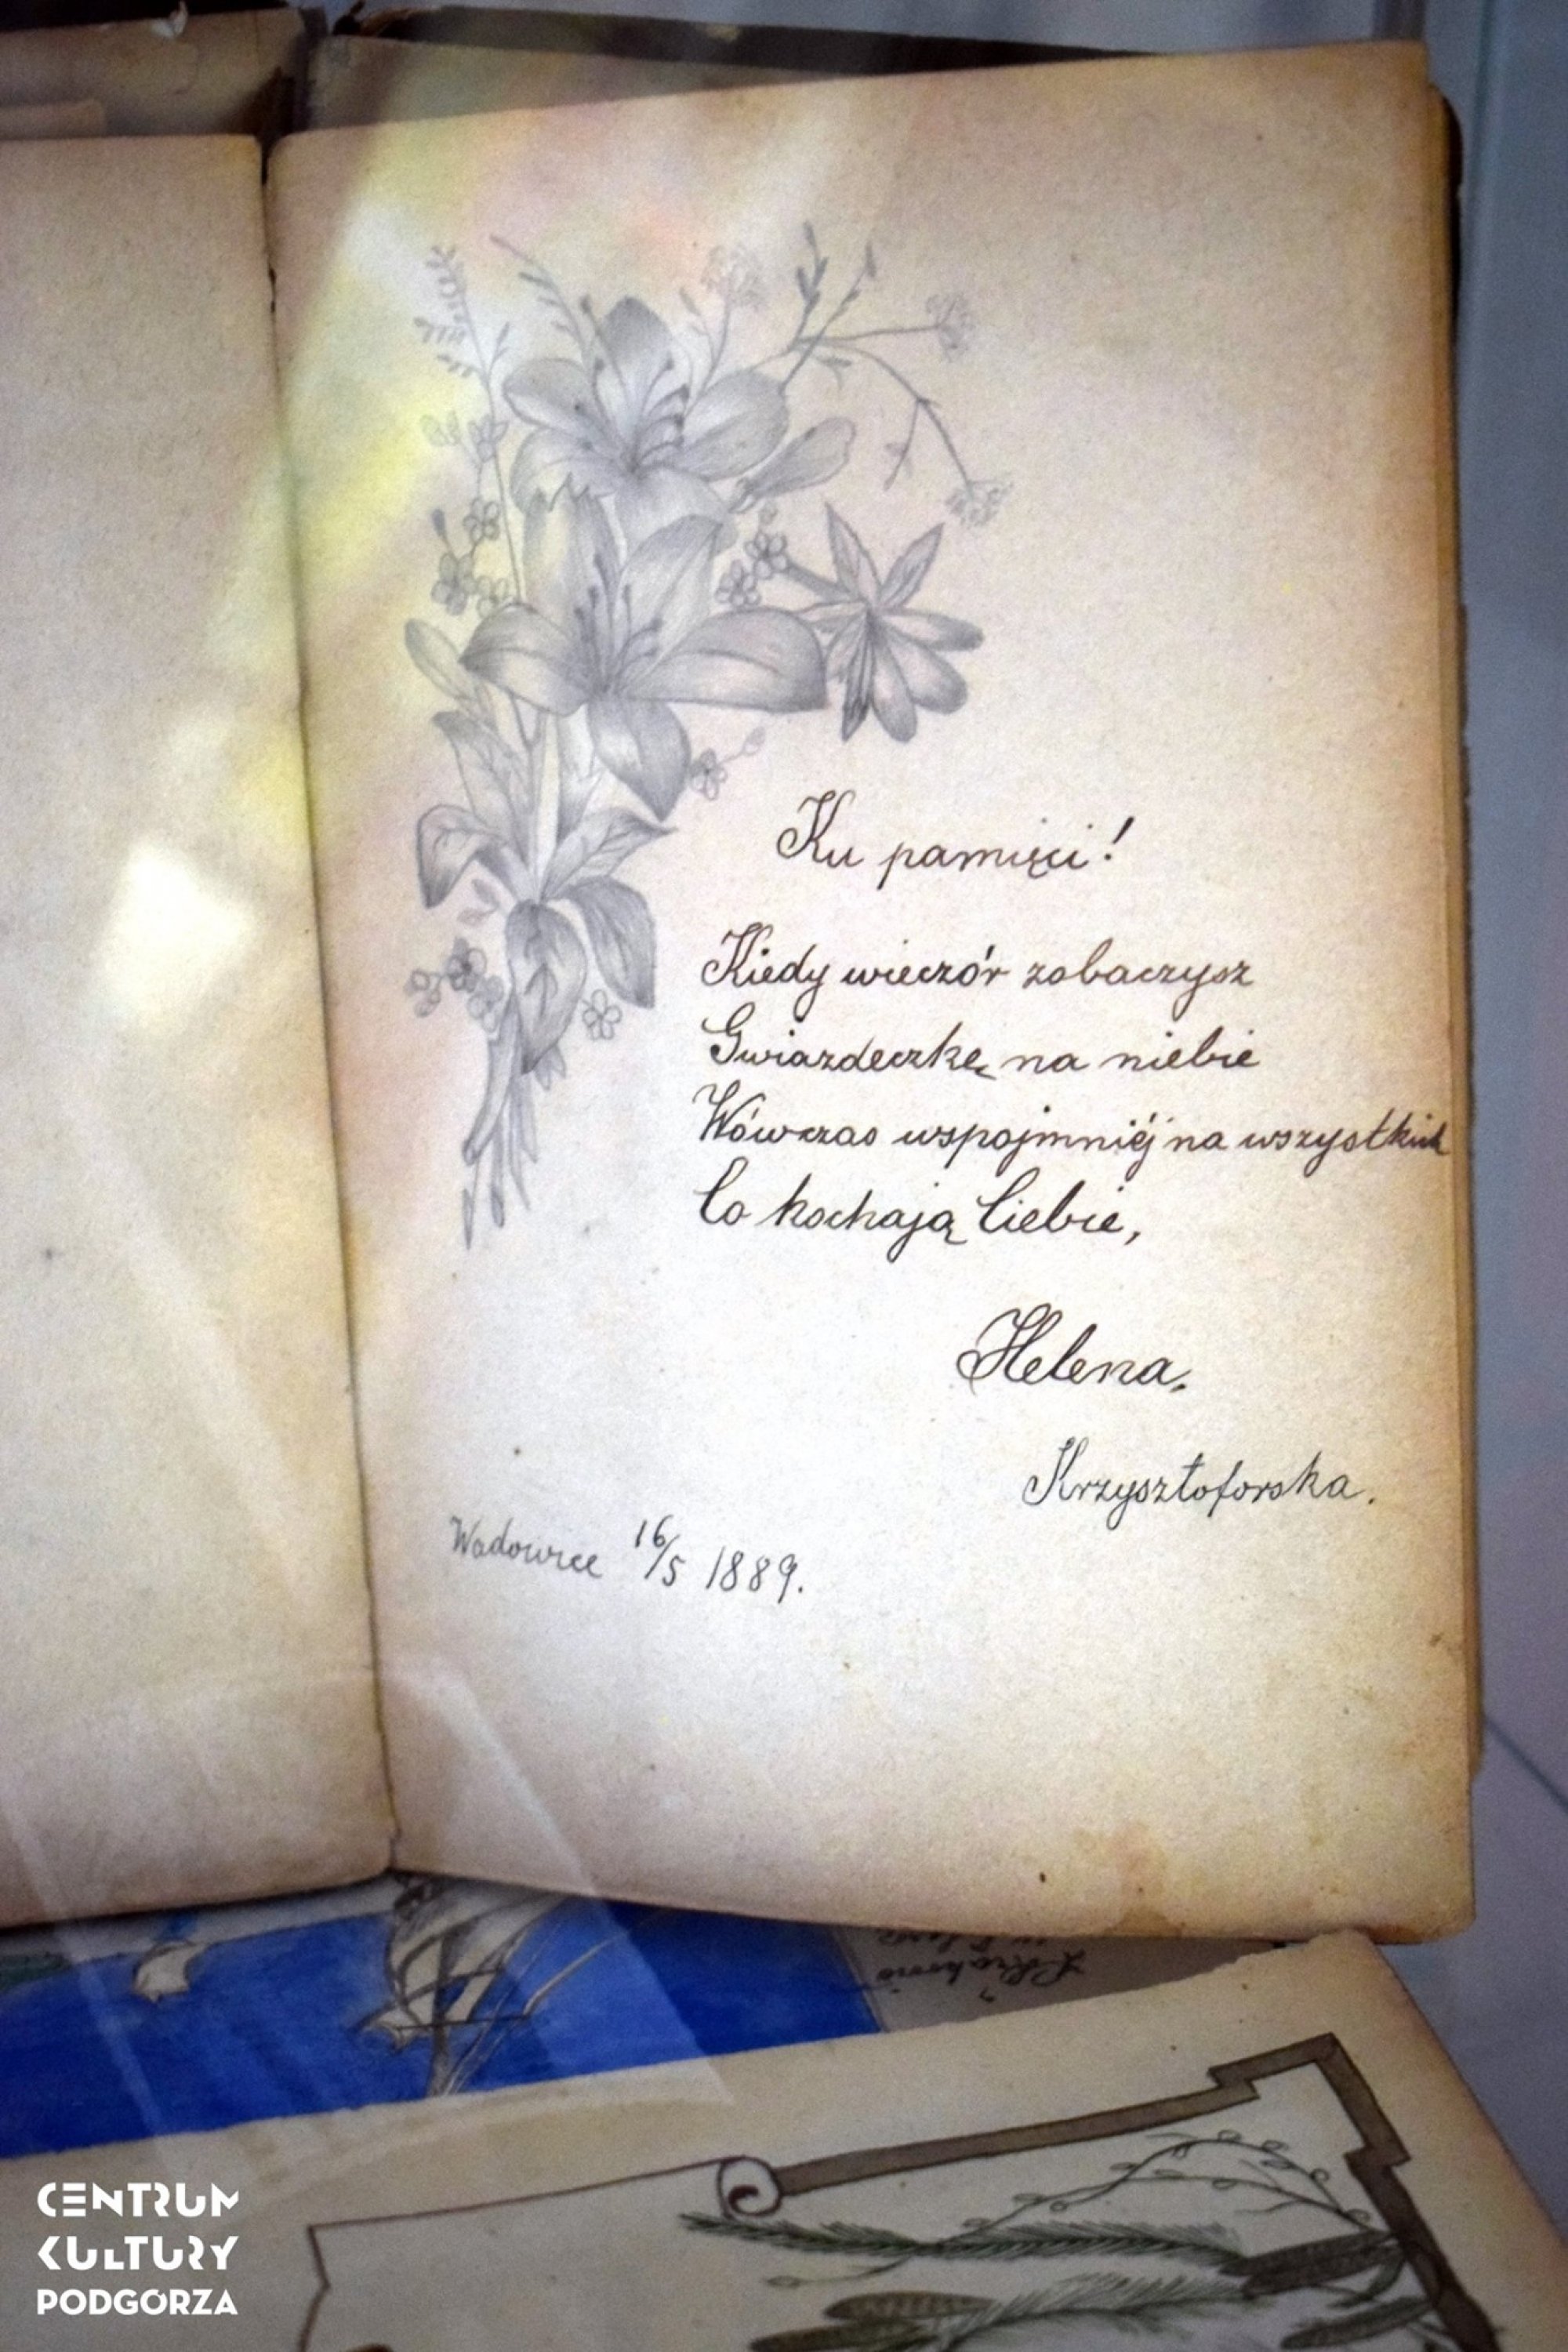 Ku pamięci!
Kiedy wieczór zobaczysz
Gwiazdeczkę na niebie
Wówczas wspojmniéj na wszystkich
Co kochają Ciebie,
Helena.
Krzysztoforska.
Wadowice 16/5 1889.
CENTRUM
KULTURY
PODGÓRZA